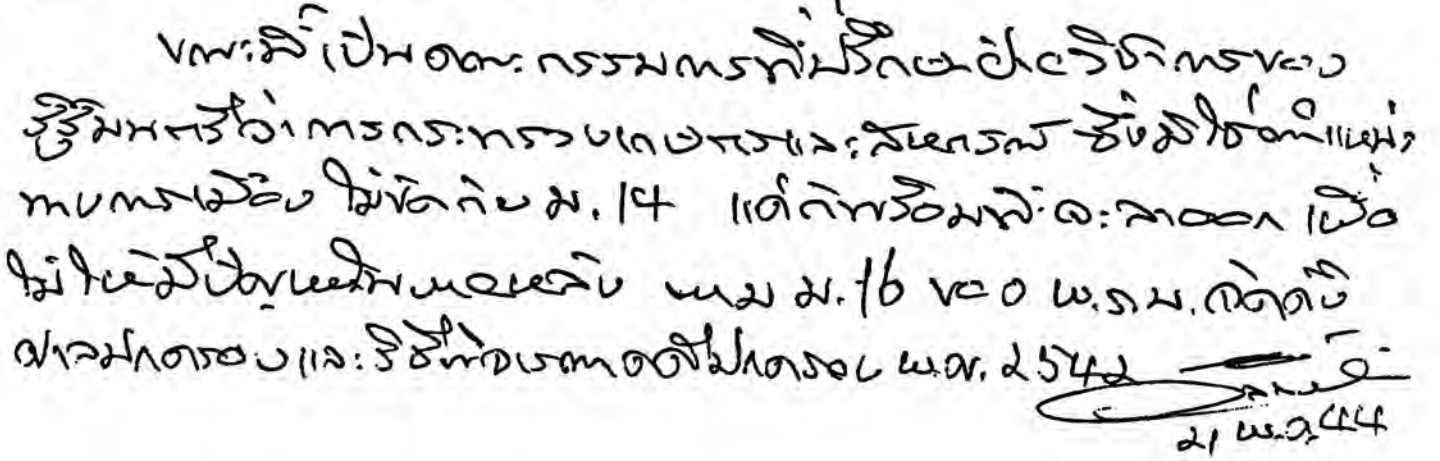 ขณะนี้เป็นคณะกรรมการที่ปรึกษาฝ่ายวิชาการของ
รัฐมนตรีว่าการกระทรวงเกษตรและสหกรณ์ ซึ่งมิใช่ตำแหน่ง
ทางการเมือง ไม่ขัดกับ ม. 14 แต่ก็พร้อมที่จะลาออก เพื่อ
ไม่ให้มีปัญหาในภายหลัง ตาม ม. 16 ของ พ.ร.บ. จัดตั้ง
ศาลปกครองและวิธีพิจารณาคดีปกครอง พ.ศ. 2542
21 พ.ค. 44